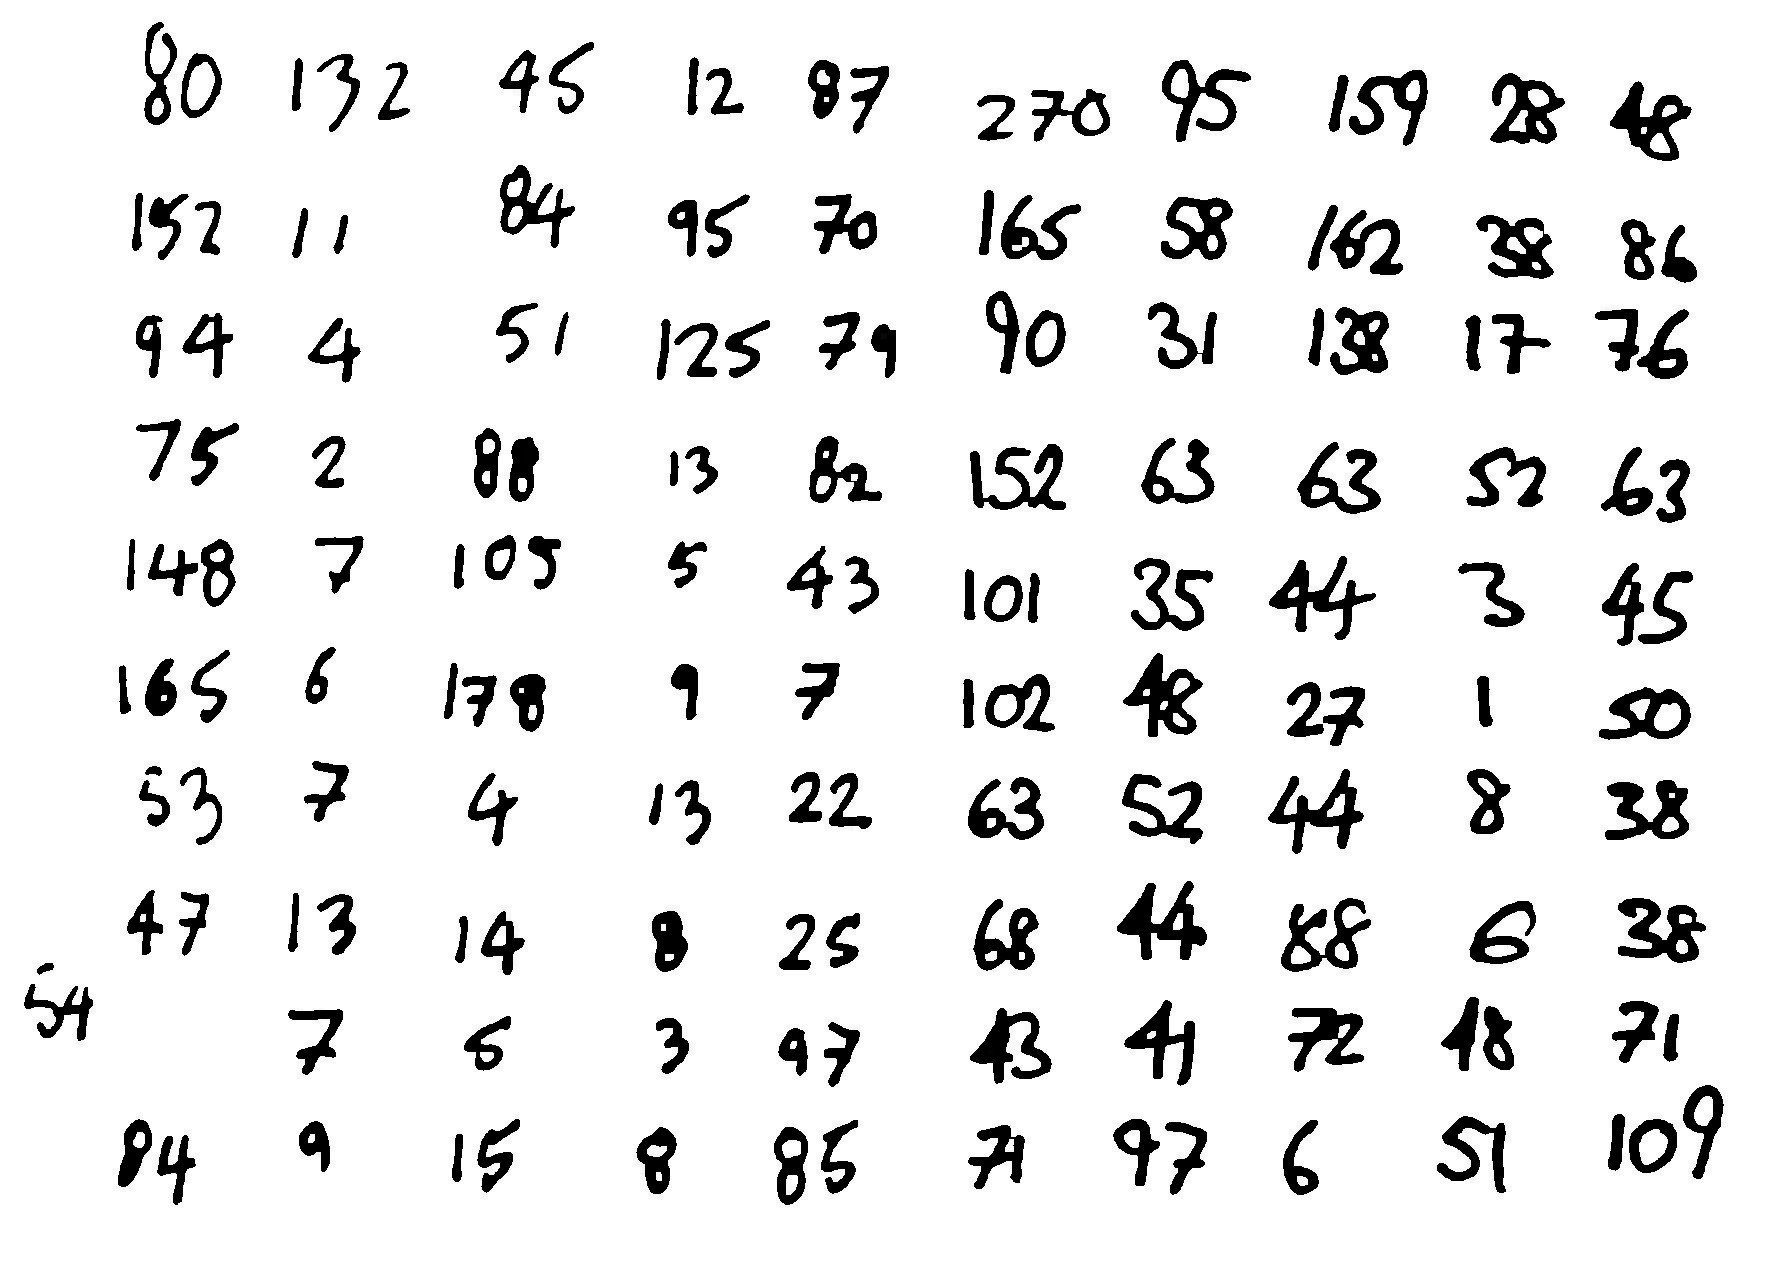 80 132 45 12 87 270 95 159 28 48
152 11 84 95 70 165 58 162 38 86
94 4 51 125 79 90 31 138 17 76
75 2 88 13 82 152 63 63 52 63
148 7 105 5 43 101 35 44 3 45
165 6 178 9 7 102 48 27 1 50
53 7 4 13 22 63 52 44 8 38
47 13 14 8 25 68 44 88 6 38
54 7 5 3 97 43 41 72 48 71
84 9 15 8 85 71 97 6 51 109